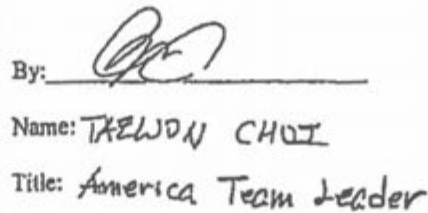 By:
Name: TAEWON CHOI
Title: America Team Leader